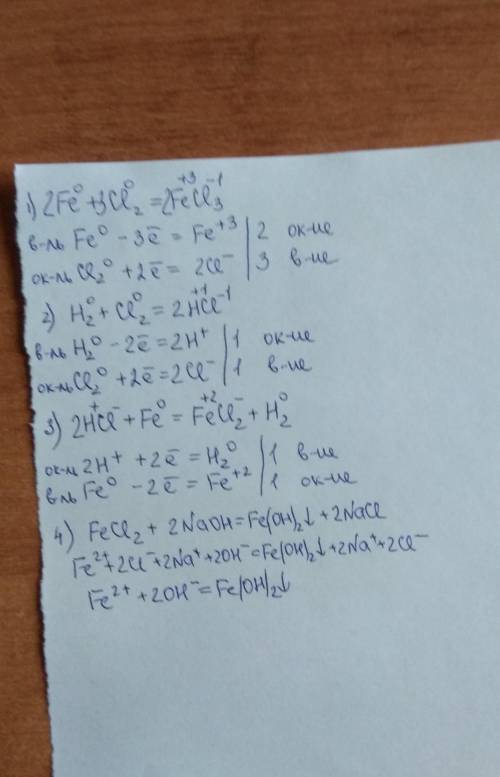 1) 2Fe⁰ + 3Cl₂⁰ = 2Fe⁺³Cl₃⁻¹
в-ль Fe⁰ - 3ē = Fe⁺³ | 2 ок-ие
ок-ль Cl₂⁰ + 2ē = 2Cl⁻ | 3 в-ие
2) H₂⁰ + Cl₂⁰ = 2H⁺¹Cl⁻¹
в-ль H₂⁰ - 2ē = 2H⁺ | 1 ок-ие
ок-ль Cl₂⁰ + 2ē = 2Cl⁻ | 1 в-ие
3) 2H⁺Cl⁻ + Fe⁰ = Fe⁺²Cl₂⁻ + H₂⁰
ок-ль 2H⁺ + 2ē = H₂⁰ | 1 в-ие
в-ль Fe⁰ - 2ē = Fe⁺² | 1 ок-ие
4) FeCl₂ + 2NaOH = Fe(OH)₂↓ + 2NaCl
Fe²⁺ + 2Cl⁻ + 2Na⁺ + 2OH⁻ = Fe(OH)₂↓ + 2Na⁺ + 2Cl⁻
Fe²⁺ + 2OH⁻ = Fe(OH)₂↓